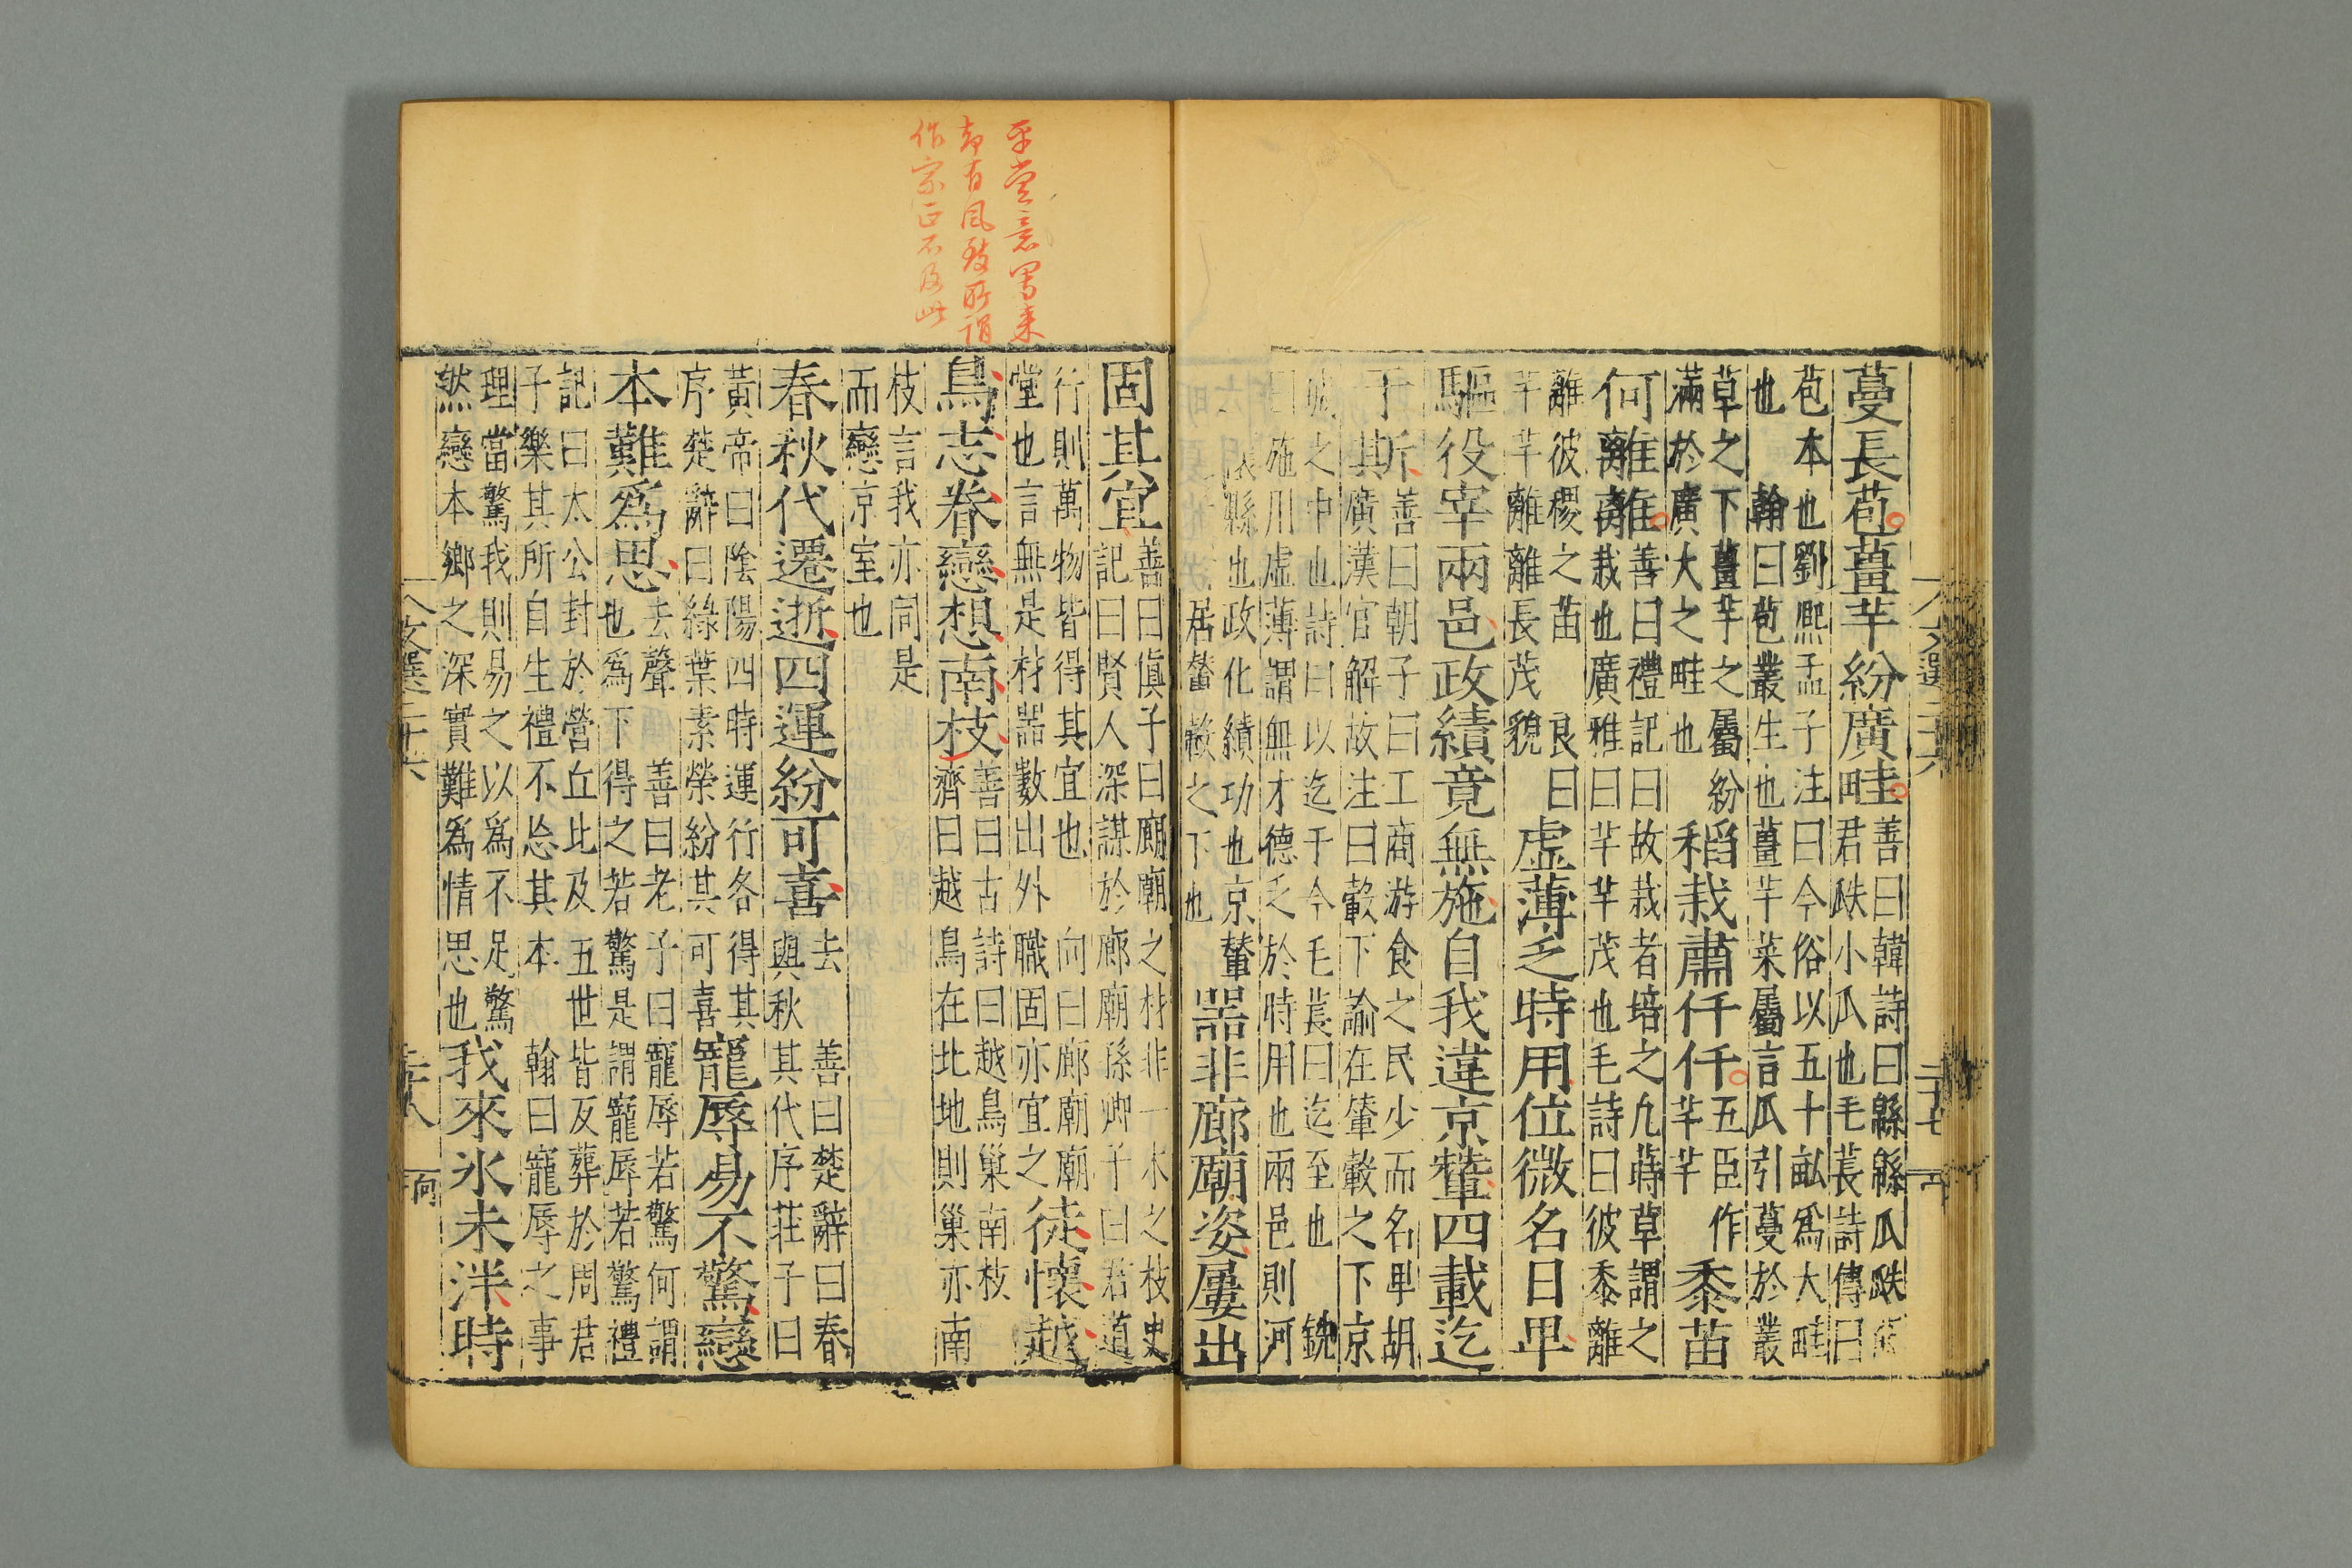 蔓長苞薑芋紛廣畦善曰韓詩曰緜緜瓜瓞
君瓞小瓜也毛萇詩傳曰
苞本也劉熙孟子注曰今俗以五十畝爲大畦
也翰曰苞叢生也薑芋菜屬言瓜引蔓於叢
草之下薑芋之屬紛
滿於廣大之畦也
稻栽肅仟仟五臣作
芊芊
黍苗
何離離善曰禮記曰故栽者培之凢蒔草謂之
栽也廣雅曰芊芊茂也毛詩曰彼黍離
離彼稷之苗良曰
芊芊離離長茂貌
虛薄乏時用位微名日卑
驅役宰兩邑政績竟無施自我違京輦四載迄
于斯善曰朝子曰工商游食之民少而名卑胡
其廣漢官解故注曰轂下論在輦轂之下京
城之中也詩曰以迄于今毛萇曰迄至也銑
曰施用虛薄謂無才德乏於時用也兩邑則河
縣也政化績功也京輦
居輦轂之下也
器非廊廟姿屢出
文選二十六
二十七
固其宜善曰愼子曰廊廟之材非一木之枝史
記曰賢人深謀於廊廟孫卿子曰君道
行則萬物皆得其宜也向曰廊廟廟
堂也言無是材器數出外職固亦宜之
徒懷越
鳥志眷戀想南枝善曰古詩曰越鳥巢南枝
濟曰越鳥在北地則巢亦南
枝言我亦同是
而戀京室也
春秋代遷逝四運紛可喜去
與秋
善曰楚辭曰春
其代序莊子曰
黃帝曰陰陽四時運行各得其
序楚辭曰綠葉素榮紛其可喜
寵辱易不驚戀
本難爲思去聲善曰老子曰寵辱若驚何謂
也爲下得之若驚是謂寵辱若驚禮
記曰太公封於營丘比及五世皆反葬於周君
子樂其所自生禮不忘其本翰曰寵辱之事
理當驚我則易之以爲不足驚
然戀本鄉之深實難爲情思也
我來氷未泮時
文選二十六
二十八
平嘗意寫来
却有風致所謂
作宗正不及此